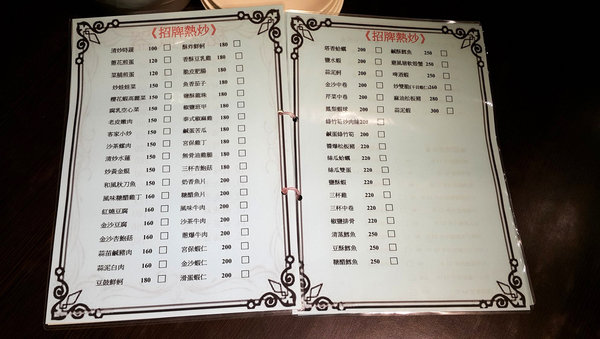 《招牌熱炒》
清炒時蔬 100 □
蔥花煎蛋 120 □
菜脯煎蛋 120 □
炒蛤蜊菜 150
櫻花蝦高麗菜 150 □
腐乳空心菜 150 □
老皮嫩肉 150 □
客家小炒 150 □
沙茶螺肉 150 □
清炒水蓮 150 □
炒黃金蜆 150 □
和風秋刀魚 150 □
風味糖醋雞丁 160 □
紅燒豆腐 160 □
金沙豆腐 160 □
金沙杏鮑菇 160 □
蒜苗鹹豬肉 160 □
蒜泥白肉 160 □
豆鼓鮮蚵 180 □
酥炸鮮蚵 180 □
香酥豆乳雞 180 □
脆皮肥腸 180 □
魚香茄子 180 □
鹽酥龍珠 180 □
椒鹽斑甲 180 □
泰式椒麻雞 180 □
鹹蛋苦瓜 180 □
宮保雞丁 180 □
無骨油雞腿 180 □
三杯杏鮑菇 180 □
奶香魚片 200 □
糖醋魚片 200 □
風味牛肉 200 □
沙茶牛肉 200 □
蔥爆牛肉 200 □
宮保蝦仁 200 □
金沙蝦仁 200 □
滑蛋蝦仁 200 □
《招牌熱炒》
塔香蛤蠣 200 □
鹽水蝦 200 □
蒜泥蚵 200 □
金沙中卷 200 □
芹菜中卷 200 □
鳳梨蝦球 200 □
綠竹筍炒肉絲 200 □
鹹蛋綠竹筍 200 □
醬爆松板豬 200 □
絲瓜蛤蠣 200 □
絲瓜雙蛋 200 □
鹽酥蝦 200 □
三杯雞 200 □
三杯中卷 200 □
椒鹽排骨 220 □
清蒸鱈魚 250 □
豆酥鱈魚 250 □
糖醋鱈魚 250 □
鹹酥鱈魚 250 □
避風塘軟殼蟹 250 □
啤酒蝦 250 □
260 □
麻油松板豬 280 □
蒜泥蝦 300 □